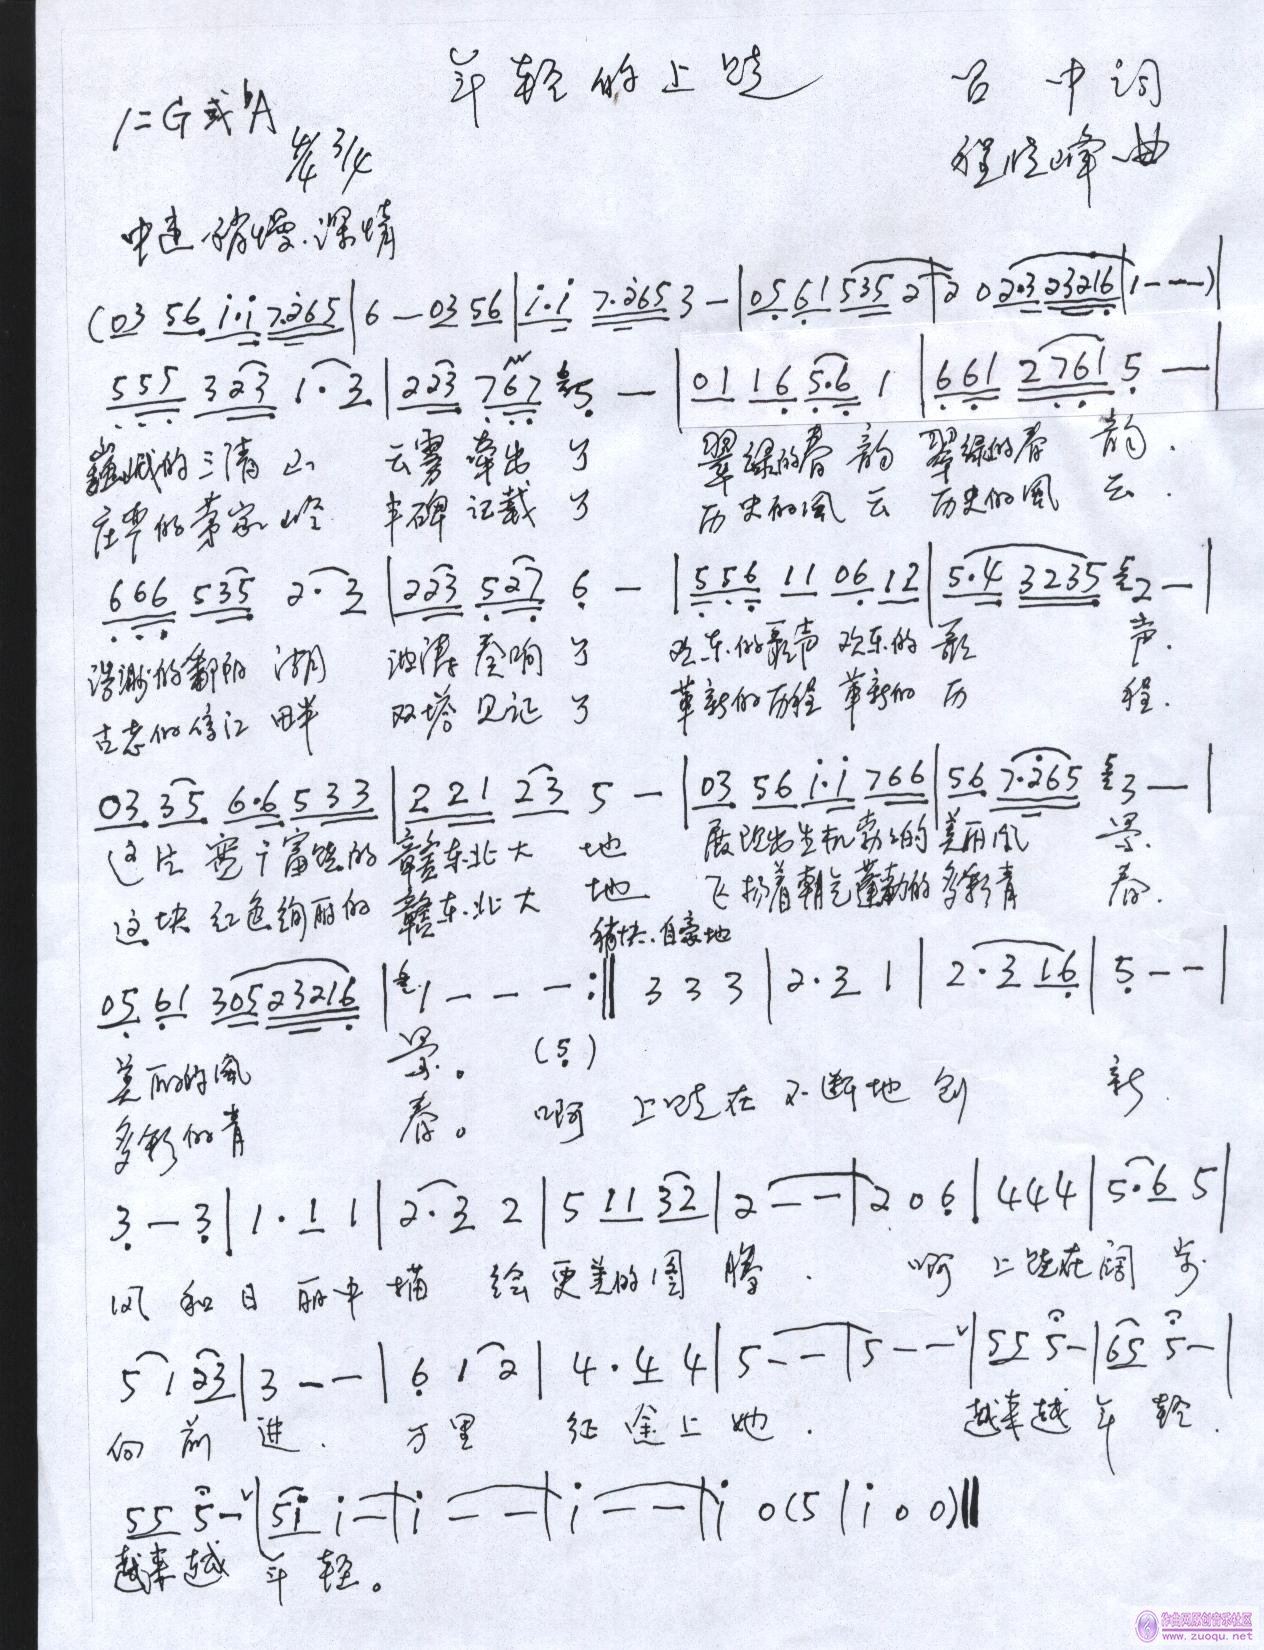 年轻的上饶
吕中词
1=G或bA
4/4 3/4
程晓峰曲
中速 稍慢.深情
(03 56 i·i 7·265|6 — 03 56|i·i 7·265 3 —|05 61 535 2|2 0 2·3 23216|1 - - -)|
555 323 1·3|223 767 5 —|01 16 5·6 1|661 2761 5 —|
巍峨的三清山 云雾牵出了 翠绿的春韵 翠绿的春韵.
庄严的葛家岭 丰碑记载了 历史的风云 历史的风云.
666 535 2·3|223 527 6 —|556 11 06 12|5·4 3235 2 —|
浩渺的鄱阳湖 波涛奏响了 欢乐的歌声 欢乐的歌声.
古老的信江畔 双塔见证了 革新的历程 革新的历程.
03 35 6·6 533|2 21 23 5 —|03 56 i·i 766|56 7·265 3 —|
这片宽广富饶的赣东北大地 展现出生机勃勃的美丽风景.
这块红色绚丽的赣东北大地 飞扬着朝气蓬勃的多彩青春.
稍快.自豪地
05 61 305 23216|1 - - - :‖ 3 3 3|2·3 1|2·3 16|5 - -|
美丽的风景。 (5)
多彩的青春。 啊 上饶在不断地创新.
3 — 3|1·1 1|2·3 2|5 11 32|2 - -|2 0 6|4 4 4|5·6 5|
风和日丽中描绘更美的图腾. 啊 上饶在阔步
5 1 23|3 - -|6 1 2|4·4 4|5 - -|5 - -|55 5 -|65 5 -|
向前进. 万里征途上她. 越来越年轻.
55 5 -|5i i -|i - -|i - -|i 0 (5|i 0 0)‖
越来越年轻。
作曲网原创音乐社区
www.zuoqu.net